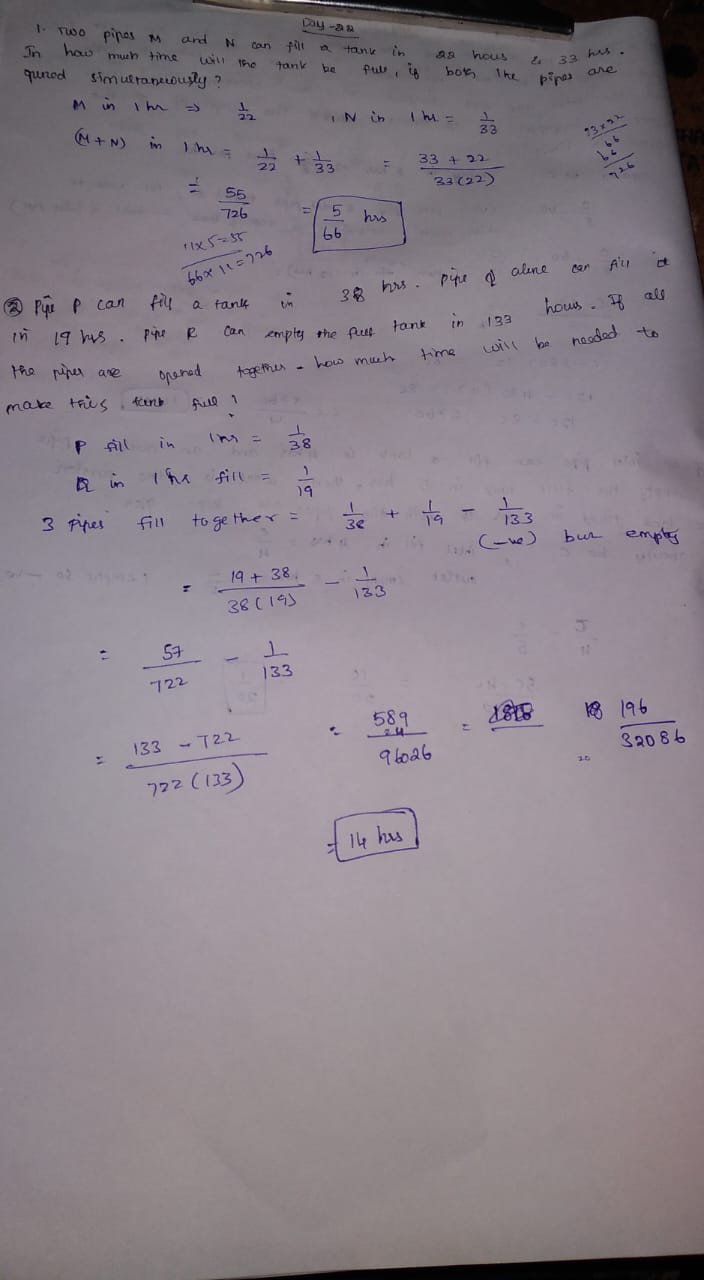 Day-22
1. Two pipes M and N can fill a tank in 22 hous & 33 hrs.
In how much time will the tank be full, if both the pipes are
quened simultaneously?
M in 1 hr ⇒ 1/22 , N in 1 hr = 1/33
(M+N) in 1 hr = 1/22 + 1/33 = 33 + 22 / 33(22)
33x22
66
66
726
= 55/726 = 5/66 hrs
11x5=55
66x11=726
② Pipe P can fill a tank in 38 hrs. Pipe Q alone can fill it
in 19 hrs. Pipe R can empty the full tank in 133 hours. If all
the pipes are opened together - how much time will be needed to
make this tank full?
P fill in 1hr = 1/38
Q in 1 hr fill = 1/19
3 Pipes fill together = 1/38 + 1/19 - 1/133
(-ve) bur empty
= 19 + 38 / 38(19) - 1/133
= 57/722 - 1/133
= 133 - 722 / 722(133) = 589/96026 = 196/32086
= 14 hrs